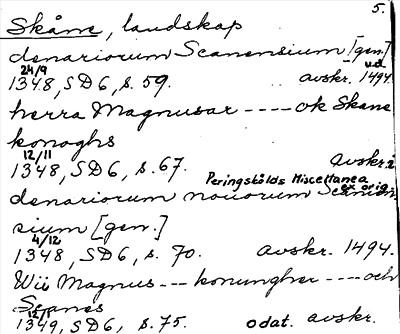 5.
Skåne, landskap
denariorum Scanensium [gen.]
24/9 u.d.
1348, SD6, s. 59. avskr. 1494.
herra Magnusar ---- ok Skane
konoghs
12/11
1348, SD6, s. 67. avskr. i
Peringskölds Miscellanea
ex orig.
denariorum nouorum Scanen-
sium [gen.]
4/12
1348, SD6, s. 70. avskr. 1494.
Wii Magnus --- konungher ---- och
Scanes
12/1
1349, SD6, s. 75. odat. avskr.